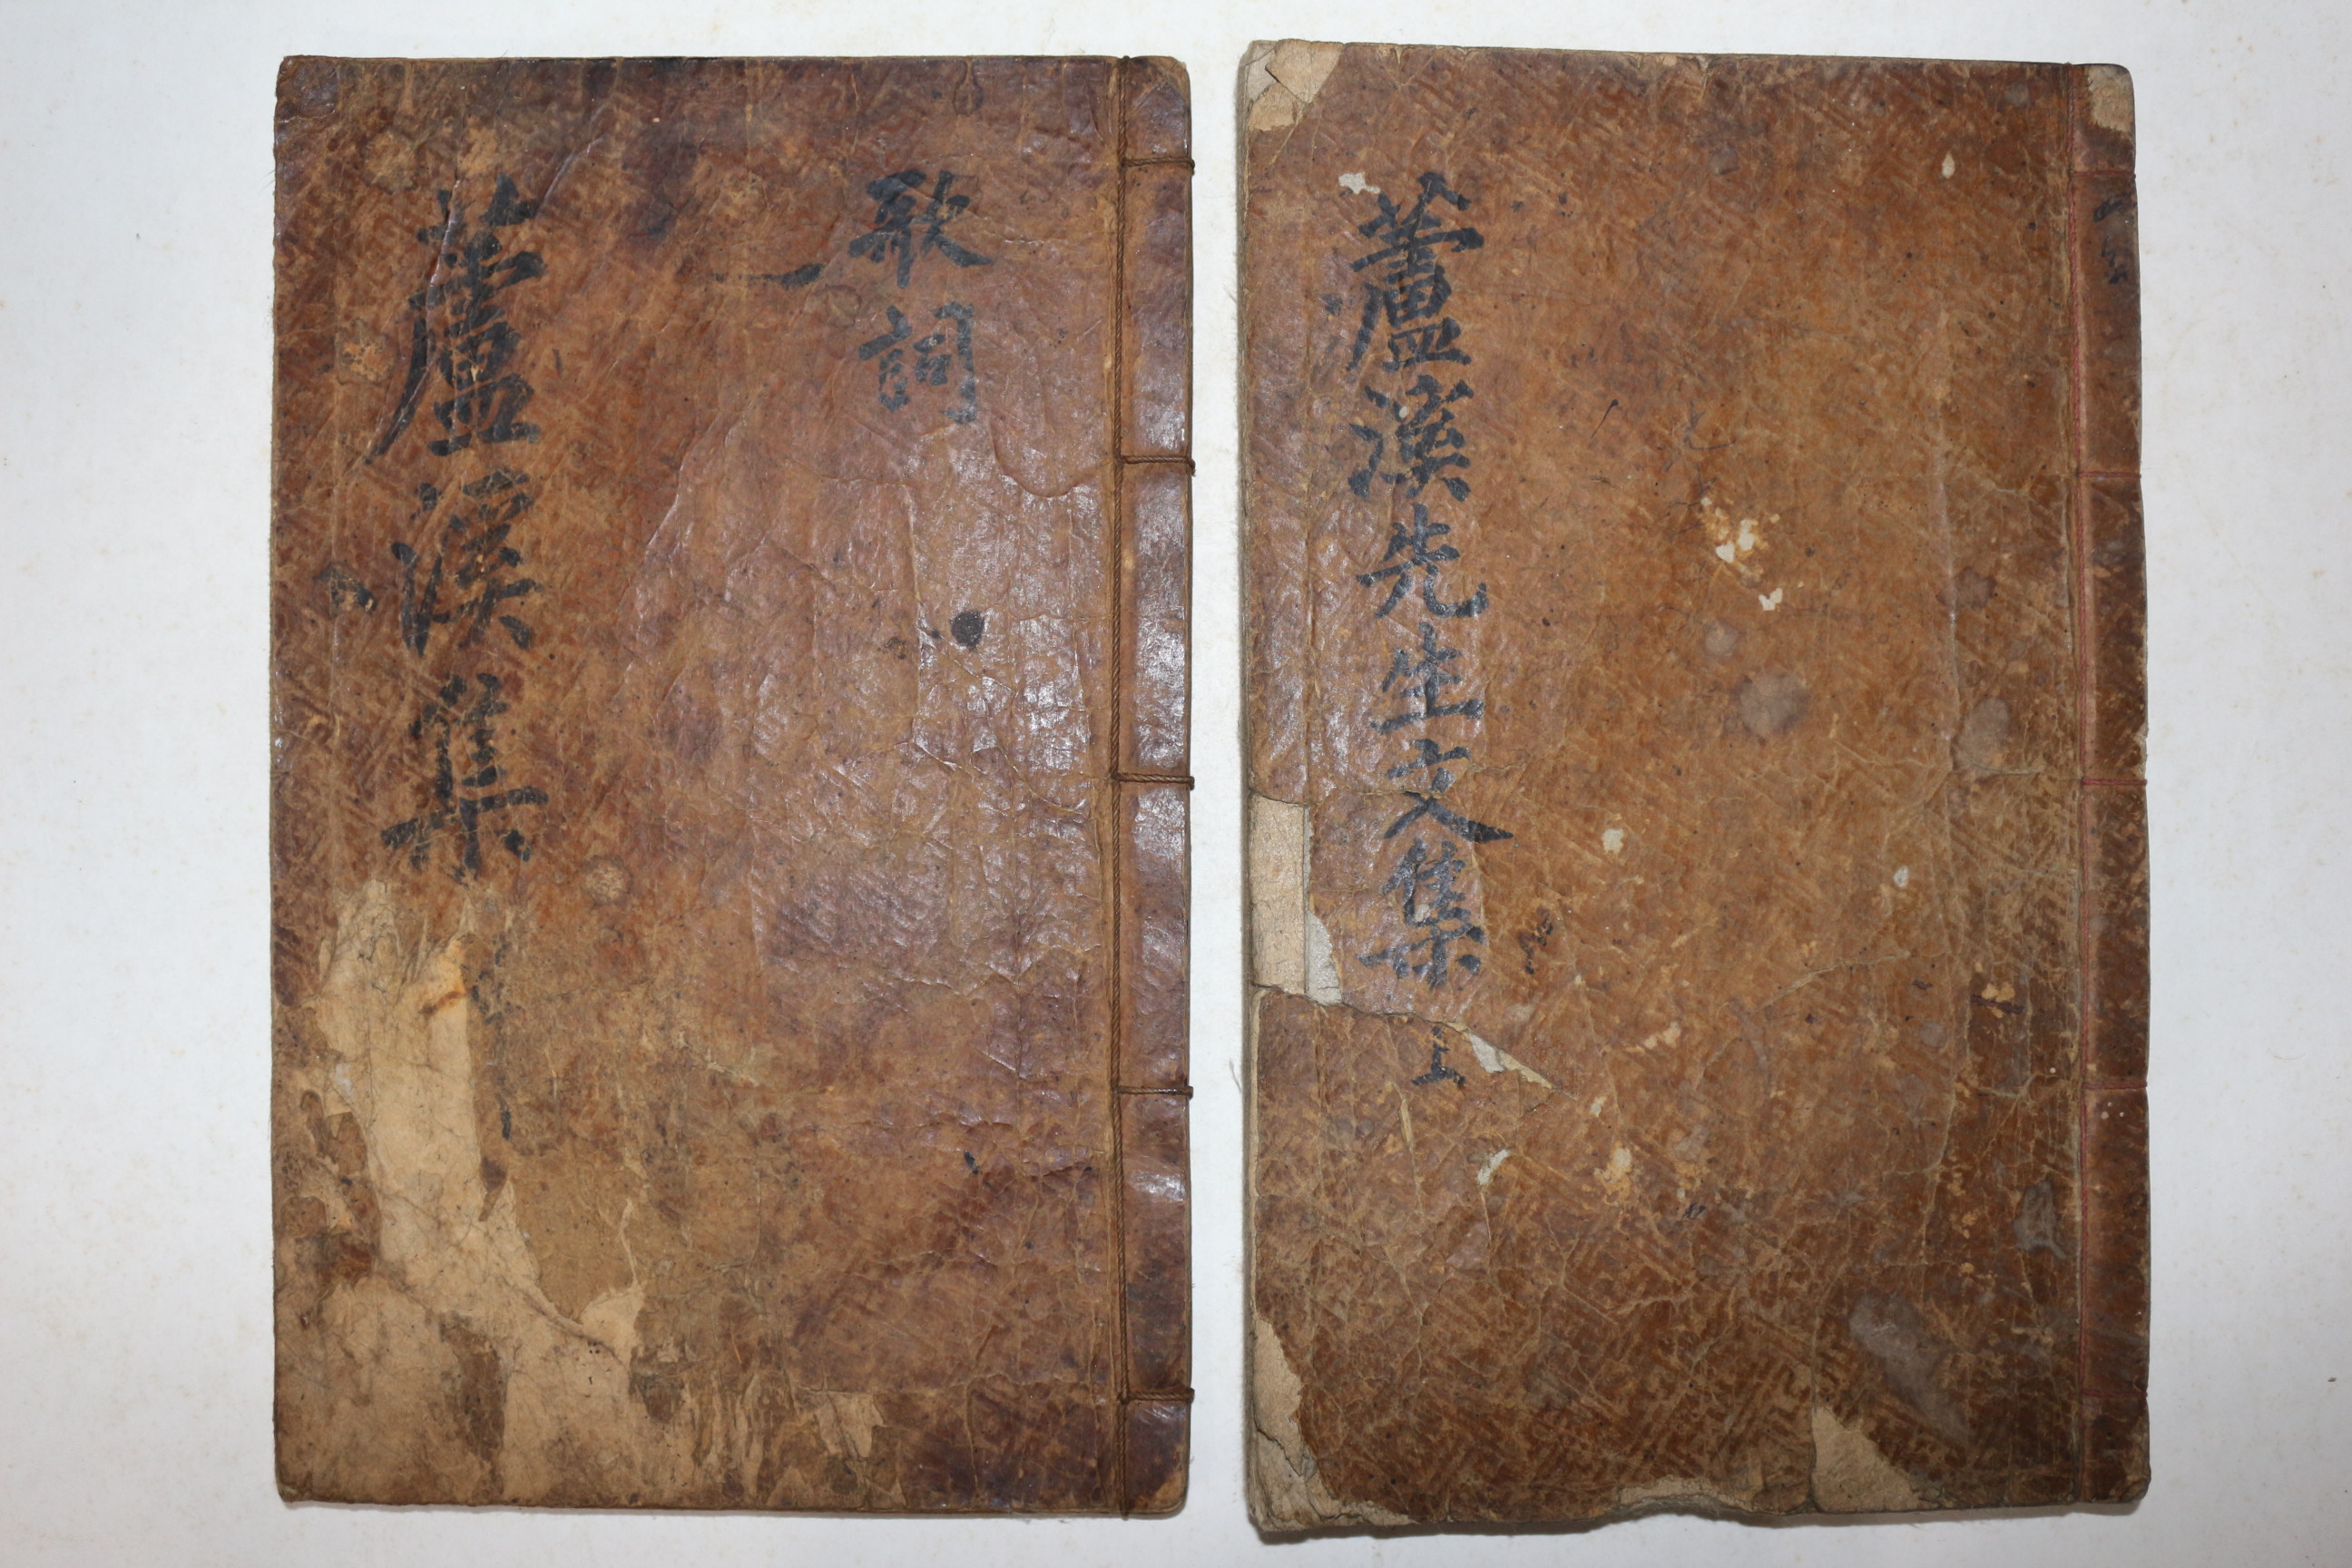 蘆溪先生文集 上
歌詞
一
蘆溪集